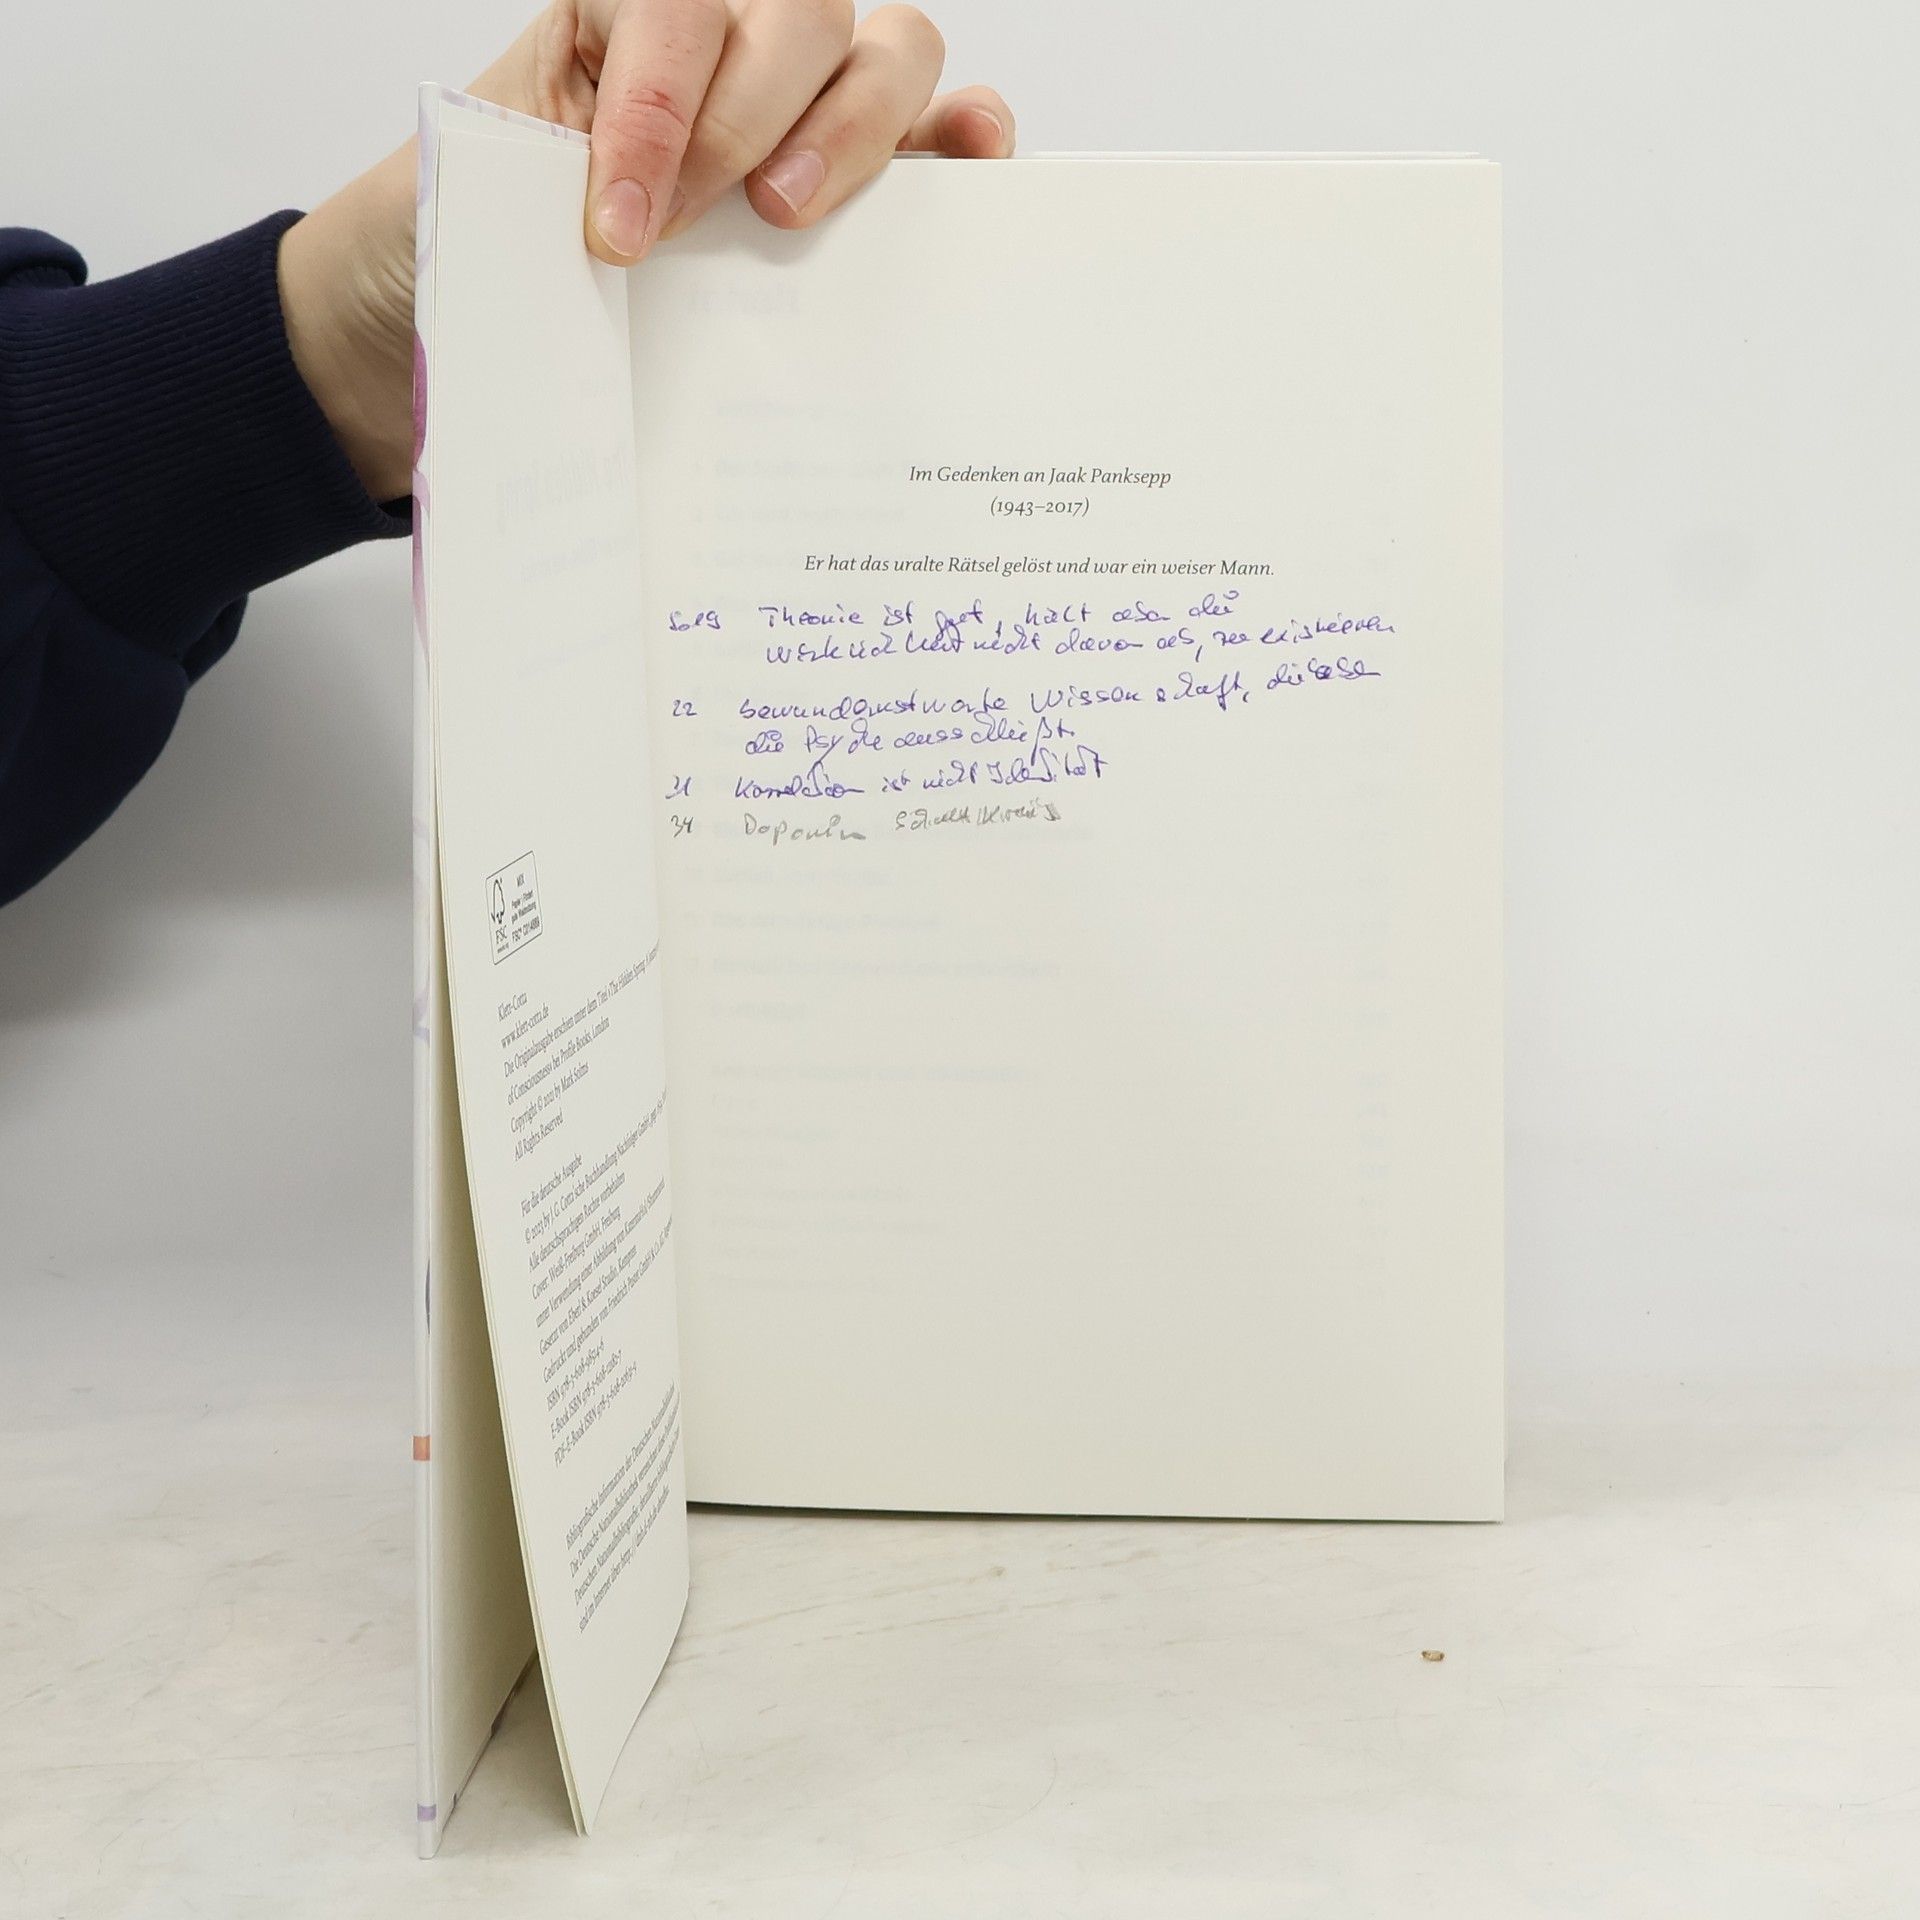 MIX
FSC
Klett-Cotta
www.klett-cotta.de
Die Originalausgabe erschien unter dem Titel »The Hidden Spring. A
of Consciousness« bei Profile Books, London
Copyright © 2021 by Mark Solms
All Rights Reserved
Für die deutsche Ausgabe
© 2023 by J. G. Cotta'sche Buchhandlung Nachfolger GmbH, gegr.
Alle deutschsprachigen Rechte vorbehalten
Cover: Weiß-Freiburg GmbH, Freiburg
unter Verwendung einer Abbildung von
Gesetzt von Eberl & Koesel Studio, Kempten
Gedruckt und gebunden von Friedrich Pustet GmbH & Co. KG,
ISBN 978-3-608-
E-Book ISBN 978-3-608-
PDF-E-Book ISBN 978-3-608-
Bibliografische Information der Deutschen Nationalbibliothek
Die Deutsche Nationalbibliothek verzeichnet diese Publikation in der
Deutschen Nationalbibliografie; detaillierte bibliografische Daten
sind im Internet über
Im Gedenken an Jaak Panksepp
(1943–2017)
Er hat das uralte Rätsel gelöst und war ein weiser Mann.
Theorie ist gut, hält aber die
Wirklichkeit nicht davon ab, zu existieren
22 bewundernswerte Wissenschaft, die aber
die Psyche ausschließt.
31 Korrelation ist nicht Identität
34